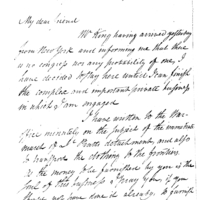 My dear friend
Mr King having arrived yesterday
from New York and informing me that there
is no congress nor any probability of one, I
have decided to stay here until I can finish
the complex and important private business
in which I am engaged
I have written to the War
Office minutely on the subject of the immediate
march of Lt Pratts detachment, and also
to transport the clothing to the frontiers.
As the money to be furnished by you is the
soul of this business I pray you if you
have not done it already to furnish